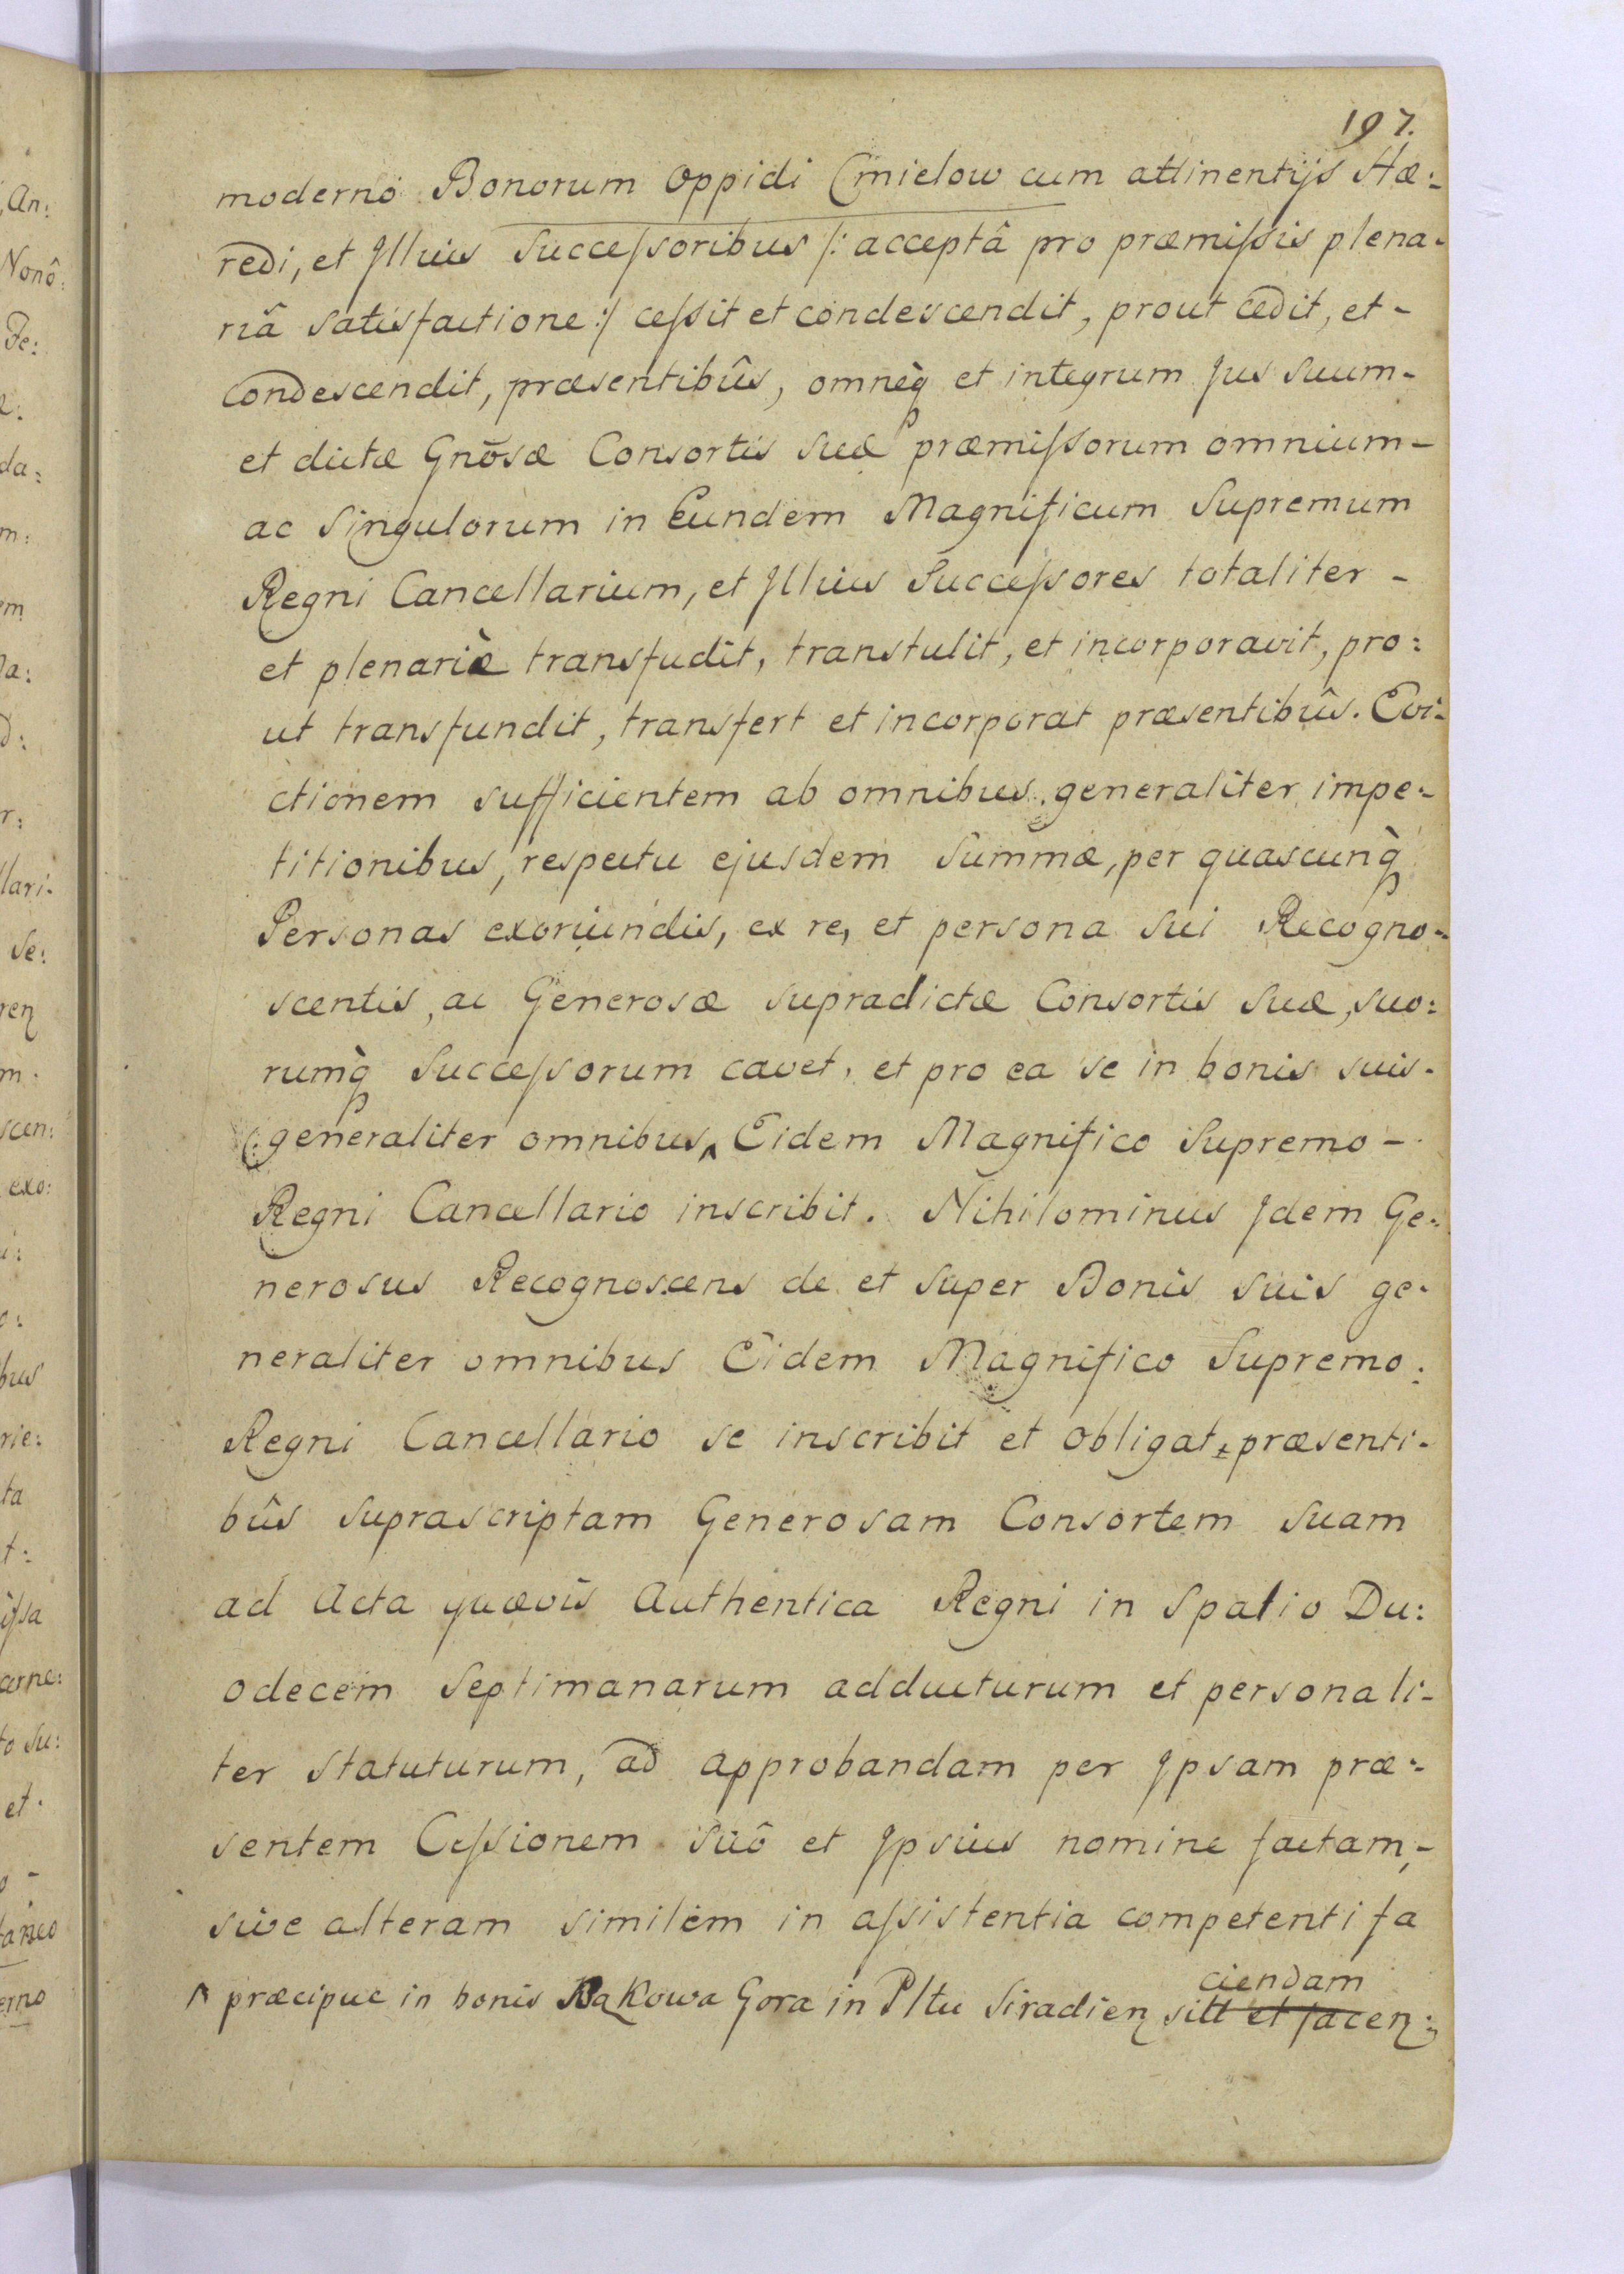 197.
moderno Bonorum Oppidi Cmielow cum attinentijs Hæ:
redi, et Illius Successoribus /: acceptâ pro præmissis plena-
riâ satisfactione :/ cessit et condescendit, prout cedit, et -
condescendit, præsentibûs, omneq̀ et integrum Jus suum -
et dictæ Gnōsæ Consortis suæ præmissorum omnium -
ac Singulorum in Eundem Magnificum Supremum
Regni Cancellarium, et Illius Successores totaliter -
et plenariè transfudit, transtulit, et incorporavit, pro:
ut transfundit, transfert et incorporat præsentibûs. Evi-
ctionem sufficientem ab omnibus generaliter impe-
titionibus, respectu ejusdem Summæ, per quascunq̀
Personas exoriundis, ex re, et persona sui Recogno-
scentis, ac Generosæ supradictæ Consortis suæ, suo:
rumq̀ Successorum cavet, et pro ea se in bonis suis -
generaliter omnibus ^ Eidem Magnifico Supremo -
Regni Cancellario inscribit. Nihilominus Idem Ge-
nerosus Recognoscens de et super Bonis suis ge-
neraliter omnibus Eidem Magnifico Supremo:
Regni Cancellario se inscribit et obligat præsenti-
bûs suprascriptam Generosam Consortem suam
ad Acta quævis Authentica Regni in Spatio Du:
odecem Septimanarum adducturum et personali-
ter statuturum, ad approbandam per Ipsam præ-
sentem Cessionem suô et Ipsius nomine factam, -
sive alteram similem in assistentia competenti fa
ciendam
^ præcipue in bonis Rąkowa Gora in Pltu Siradien sitt et jacen:
An:
Nonô:
Fe:
da:
m:
em
r:
llari-
se:
m.
scen:
exo:
bus
rie:
ta
t:
arne:
to su:
et.
taneo
erno